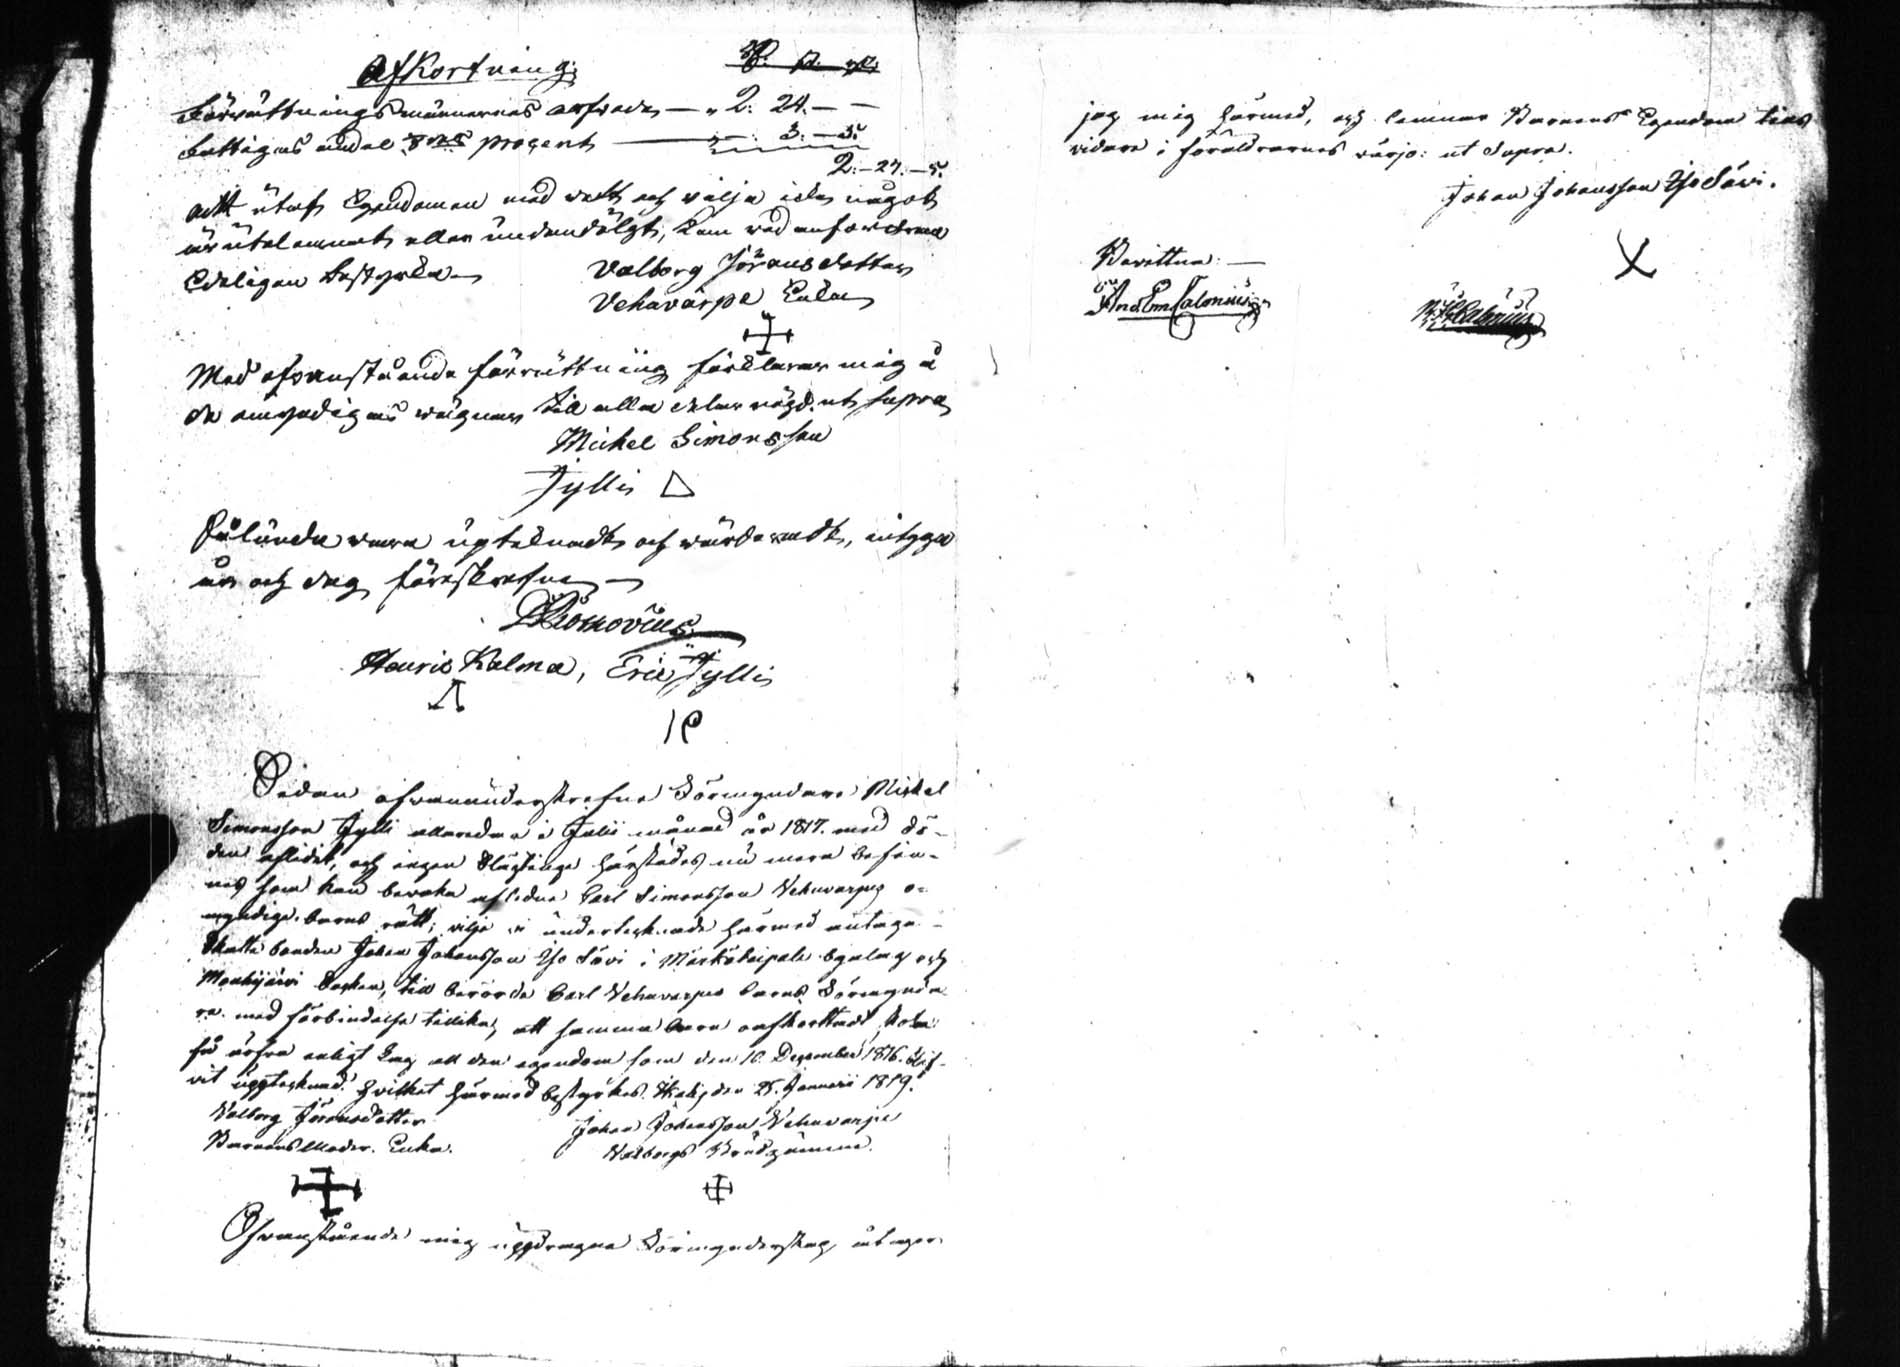 Afkortning
Förrättningsmännernas arfvode — „ 2: 24. — —
Fattigas andel 8dels procent — 3. — 5.
2. — 27. — 5.
Att utaf Egendomen med vett och vilja icke något
är utelemnat eller undandölgt, kan wid anfordran
Edeligen bestyrka —
Valborg Jöransdotter
Vehuvarpe Enka
Med ofvanstående förrättning förklarar mig å
de omyndigas wägnar till alla delar nögd. ut supra
Michel Simonsson
Jylli
Sålunda vara uptecknadt och värderadt, intyga
år och dag föreskrefne —
Henric Kalma, Eric Jylli
Sedan ofvanunderskrefne Förmyndare Michel
Simonsson Jylli allaredan i Julii månad år 1817. med dö-
den aflidit, och ingen Slägtinge härstädes nu mera befin-
nes som kan bevaka aflidne Carl Simonsson Vehuvarpes o-
myndige barns rätt; vilje vi undertecknade härmed antaga
Skatte bonden Johan Johansson Iso Sävi i byalag och
Mouhijärvi Socken, till berörde Carl Vehuvarpes barns Förmynda-
re med förbindelse tillika, att samma barn oafkortadt skola
få ärfva enligt Lag all den egendom som den 10. December 1816. blif-
vit uppteknad. hvilket härmed bestyrkes. den 25. Januarii 1819.
Valborg Jöransdotter
Johan Johansson Vehuvarpe
Barnens Moder. Enka.
Valborgs Brudgumme.
Ofvanstående mig uppdragna Förmynderskap, åtager
jag mig härmed, och lemnar Barnens Egendom tills
vidare i föräldrarnes värjo: ut Supra.
Johan Johansson Iso Sävi.
Bevittna: —